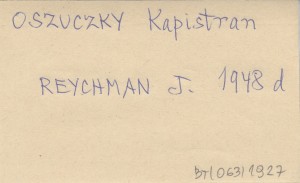 OSZUCZKY Kapistran
REYCHMAN J. 1948 d
BT/063/1927